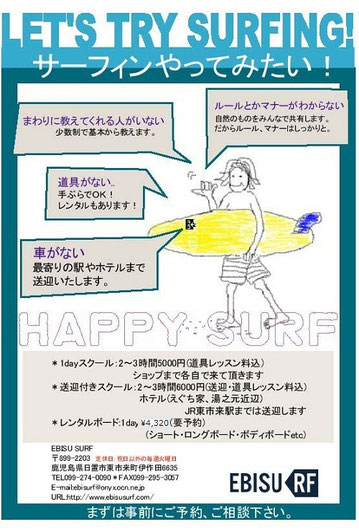 LET'S TRY SURFING!
サーフィンやってみたい！
まわりに教えてくれる人がいない
少数制で基本から教えます。
ルールとかマナーがわからない
自然のものをみんなで共有します。
だからルール、マナーはしっかりと。
道具がない..
手ぶらでOK！
レンタルもあります！
車がない
最寄りの駅やホテルまで
送迎いたします。
HAPPY SURF
＊1dayスクール：2～3時間5000円(道具レッスン料込)
ショップまで各自で来て頂きます
＊送迎付きスクール：2～3時間6000円(送迎・道具レッスン料込)
ホテル(えぐち家、湯之元近辺)
JR東市来駅までは送迎します
＊レンタルボード：1day ¥4,320(要予約)
(ショート・ロングボード・ボディボードetc)
EBISU SURF
〒899-2203 定休日:祝日以外の毎週火曜日
鹿児島県日置市東市来町伊作田6635
TEL099-274-0090＊FAX099-295-3057
E-mail:ebisurf@ony.ocn.ne.jp
URL:http://www.ebisusurf.com/
EBISU RF
まずは事前にご予約、ご相談下さい。